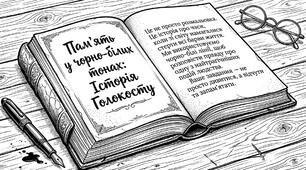 Пам'ять
у чорно-білих
тонах:
Історія
Голокосту
Це не просто розмальовка.
Це історія про часи,
коли зі світу намагалися
стерти всі барви життя.
Ми використовуємо
чорно-білі лінії, щоб
розповісти правду про
одну з найтрагічніших
подій людства.
Ваше завдання – не
просто дивитися, а відчути
та запам'ятати.